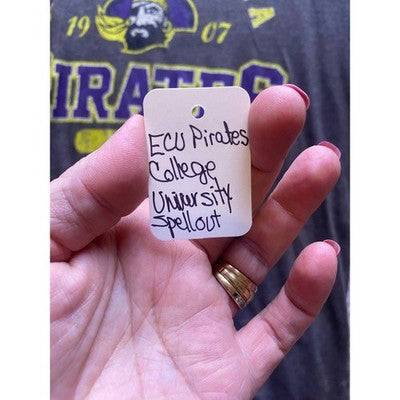 1907
PIRATES
ECU Pirates
College
University
Spellout